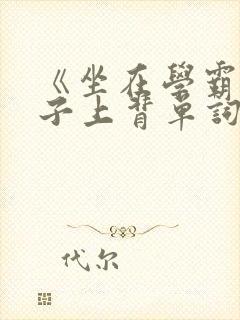 《坐在學霸
子上背單詞
代尔